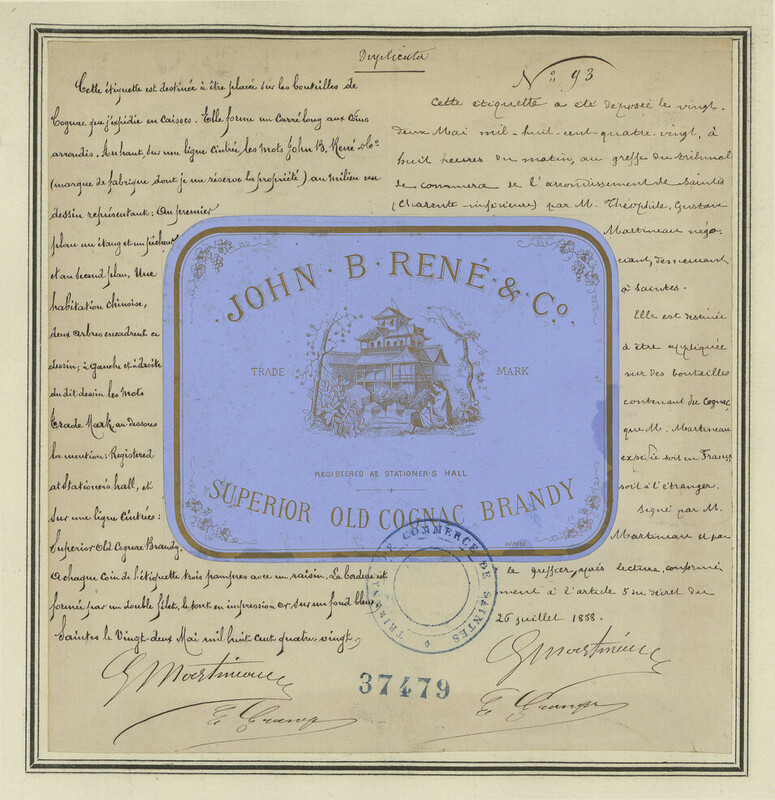 Duplicata
Cette étiquette est destinée à être placée sur les bouteilles de
Cognac que j'expédie en caisses. Elle forme un carré long aux coins
arrondis. Au haut, sur une ligne cintrée, les mots John B. René & Cº
(marque de fabrique dont je me réserve la propriété) au milieu un
dessin représentant: Au premier
plan un étang et un pêcheur
et au second plan, Une
habitation chinoise,
deux arbres encadrent ce
dessin; à Gauche et à droite
du dit dessin les mots
Trade Mark, au dessous
la mention: Registered
at Stationer's hall, et
Sur une ligne Cintrée:
Superior Old Cognac Brandy.
A chaque coin de l'étiquette trois pampres avec un raisin. La bordure est
formée par un double filet, le tout en impression or, sur un fond bleu.
Saintes le Vingt deux Mai mil huit cent quatre vingt,
GMartineau
Nº 93
Cette étiquette a été déposée le vingt-
deux Mai mil-huit-cent-quatre-vingt, à
huit heures du matin, au greffe du tribunal
de commerce de l'arrondissement de Saintes
(Charente-inférieure) par M. Théophile, Gustave
Martineau négo-
ciant, demeurant
à Saintes.
Elle est destinée
à être appliquée
sur des bouteilles
contenant du Cognac
que M. Martineau
expédie soit en France,
soit à l'étranger.
Signé par M.
Martineau et par
le greffier, après lecture, conformé
ment à l'article 5 du décret du
26 juillet 1858.
GMartineau
JOHN · B · RENÉ · & · Cº.
TRADE MARK
REGISTERED AT STATIONER·S HALL
SUPERIOR OLD COGNAC BRANDY
TRIBUNAL DE COMMERCE DE SAINTES
37479